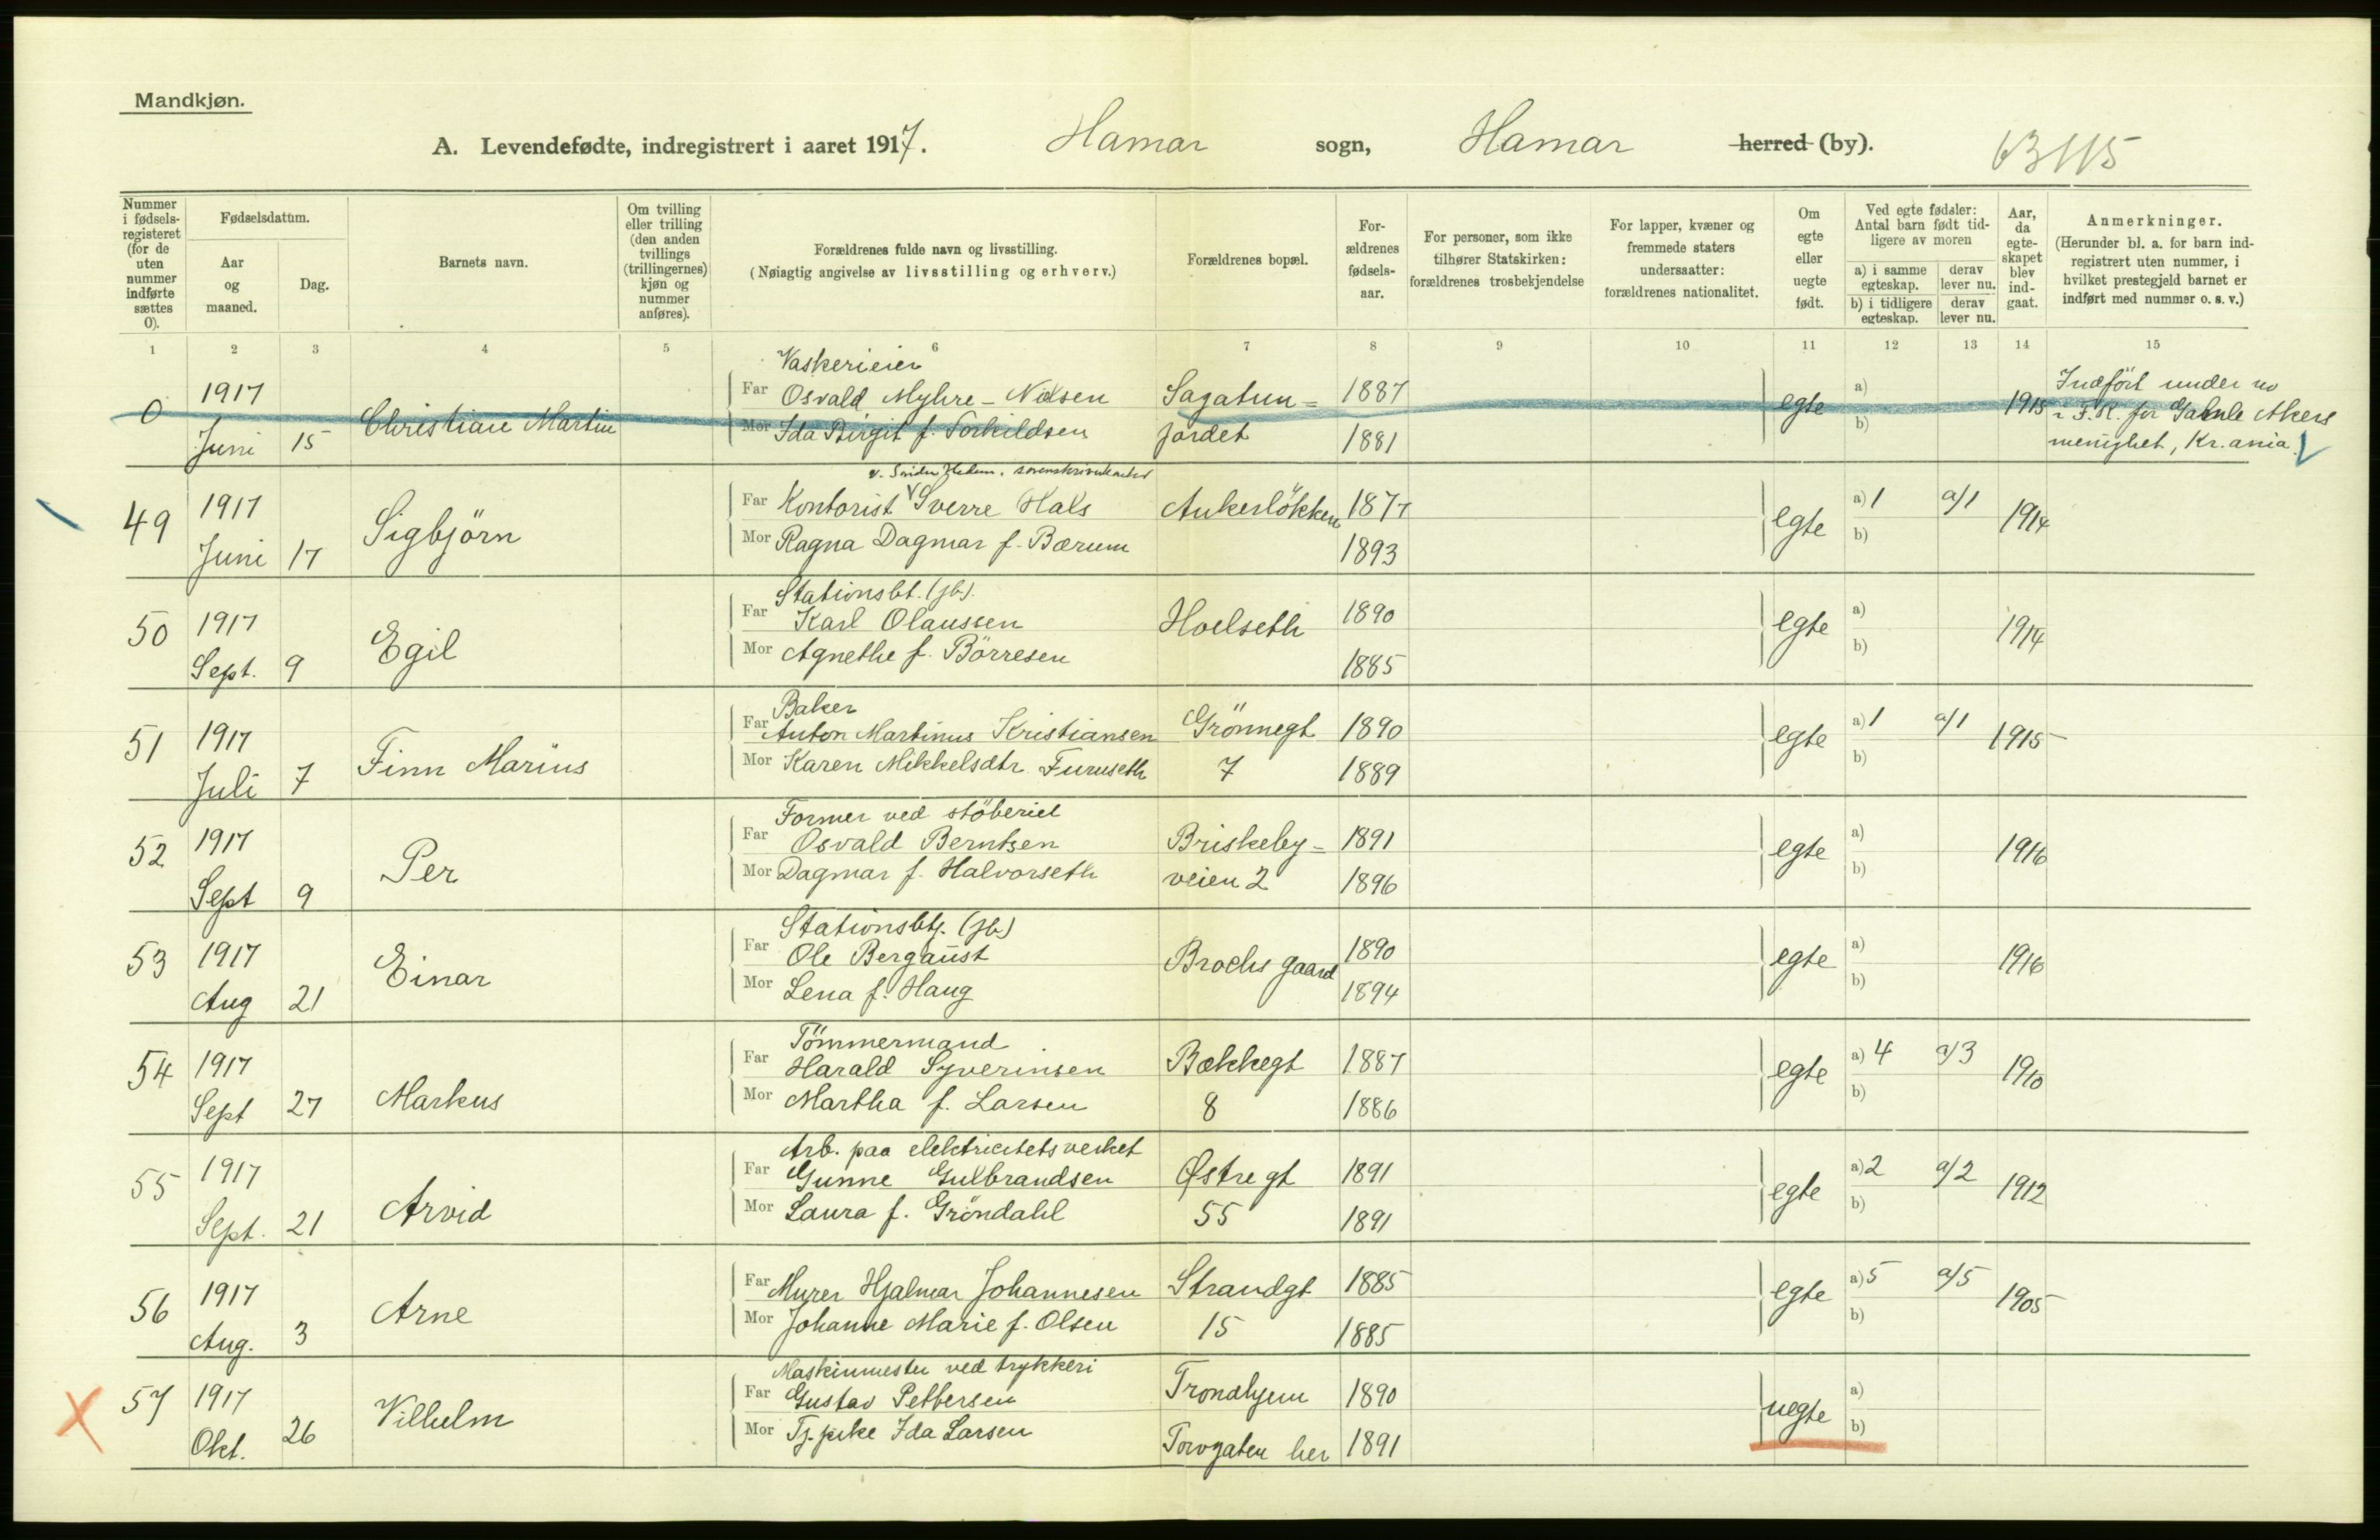 Mandkjøn.
A. Levendefødte, indregistrert i aaret 1917. Hamar sogn, Hamar herred (by). 63115
Nummer i fødsels-registeret (for de uten nummer indførte sættes 0).
Fødselsdatum.
Aar og maaned.
Dag.
Barnets navn.
Om tvilling eller trilling (den anden tvillings (trillingernes) kjøn og nummer anføres).
Forældrenes fulde navn og livsstilling.
(Nøiagtig angivelse av livsstilling og erhverv.)
Forældrenes bopæl.
For-ældrenes fødsels-aar.
For personer, som ikke tilhører Statskirken: forældrenes trosbekjendelse
For lapper, kvæner og fremmede staters undersaatter: forældrenes nationalitet.
Om egte eller uegte født.
Ved egte fødsler: Antal barn født tid-ligere av moren
a) i samme egteskap.
b) i tidligere egteskap.
derav lever nu.
derav lever nu.
Aar, da egte-skapet blev ind-gaat.
Anmerkninger.
(Herunder bl. a. for barn ind-registrert uten nummer, i hvilket prestegjeld barnet er indført med nummer o. s. v.)
1 2 3 4 5 6 7 8 9 10 11 12 13 14 15
Vaskerieier
0 1917 Far Osvald Myhre-Nilsen Sagatun- 1887 egte a) 1915 Indført under no
Juni 15 Christian Martin Mor Ida Birgit f. Torkildsen jordet 1881 b) i F.R. for Gamle Akers
menighet, Kr.ania.
49 1917 Far Kontorist Sverre Hals Ankerløkken 1877 egte a) 1 a/1 1914
Juni 17 Sigbjörn Mor Ragna Dagmar f. Bærum 1893 b)
Stationsbt. (jb).
50 1917 Far Karl Olaussen Hoelseth 1890 egte a) 1914
Sept. 9 Egil Mor Agnethe f. Börresen 1885 b)
Baker
51 1917 Far Anton Martinus Kristiansen Grönnegt 1890 egte a) 1 a/1 1915
Juli 7 Finn Marius Mor Karen Mikkelsdtr. Furuseth 7 1889 b)
Former ved stöberiet
52 1917 Far Osvald Berntsen Briskeby- 1891 egte a) 1916
Sept 9 Per Mor Dagmar f. Halvorseth veien 2 1896 b)
Stationsbtj. (jb)
53 1917 Far Ole Bergaust Brochs gaard 1890 egte a) 1916
Aug 21 Einar Mor Lena f. Haug 1894 b)
Tömmermand
54 1917 Far Harald Syverinsen Bækkegt 1887 egte a) 4 a/3 1910
Sept 27 Markus Mor Martha f. Larsen 8 1886 b)
Arb. paa elektricitetsverket
55 1917 Far Gunne Gulbrandsen Østre gt 1891 egte a) 2 a/2 1912
Sept. 21 Arvid Mor Laura f. Gröndahl 55 1891 b)
56 1917 Far Murer Hjalmar Johannesen Strandgt 1885 egte a) 5 a/5 1905
Aug. 3 Arne Mor Johanne Marie f. Olsen 15 1885 b)
Maskinmester ved trykkeri
57 1917 Far Gustav Pettersen Trondhjem 1890 uegte a)
Okt. 26 Vilhelm Mor Tj.pike Ida Larsen Torvgaten her 1891 b)